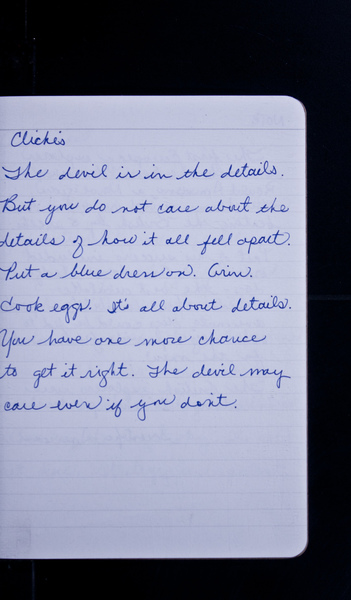 Cliché's
The devil is in the details.
But you do not care about the
details of how it all fell apart.
Put a blue dress on. Grin.
Cook eggs. It's all about details.
You have one more chance
to get it right. The devil may
care even if you don't.